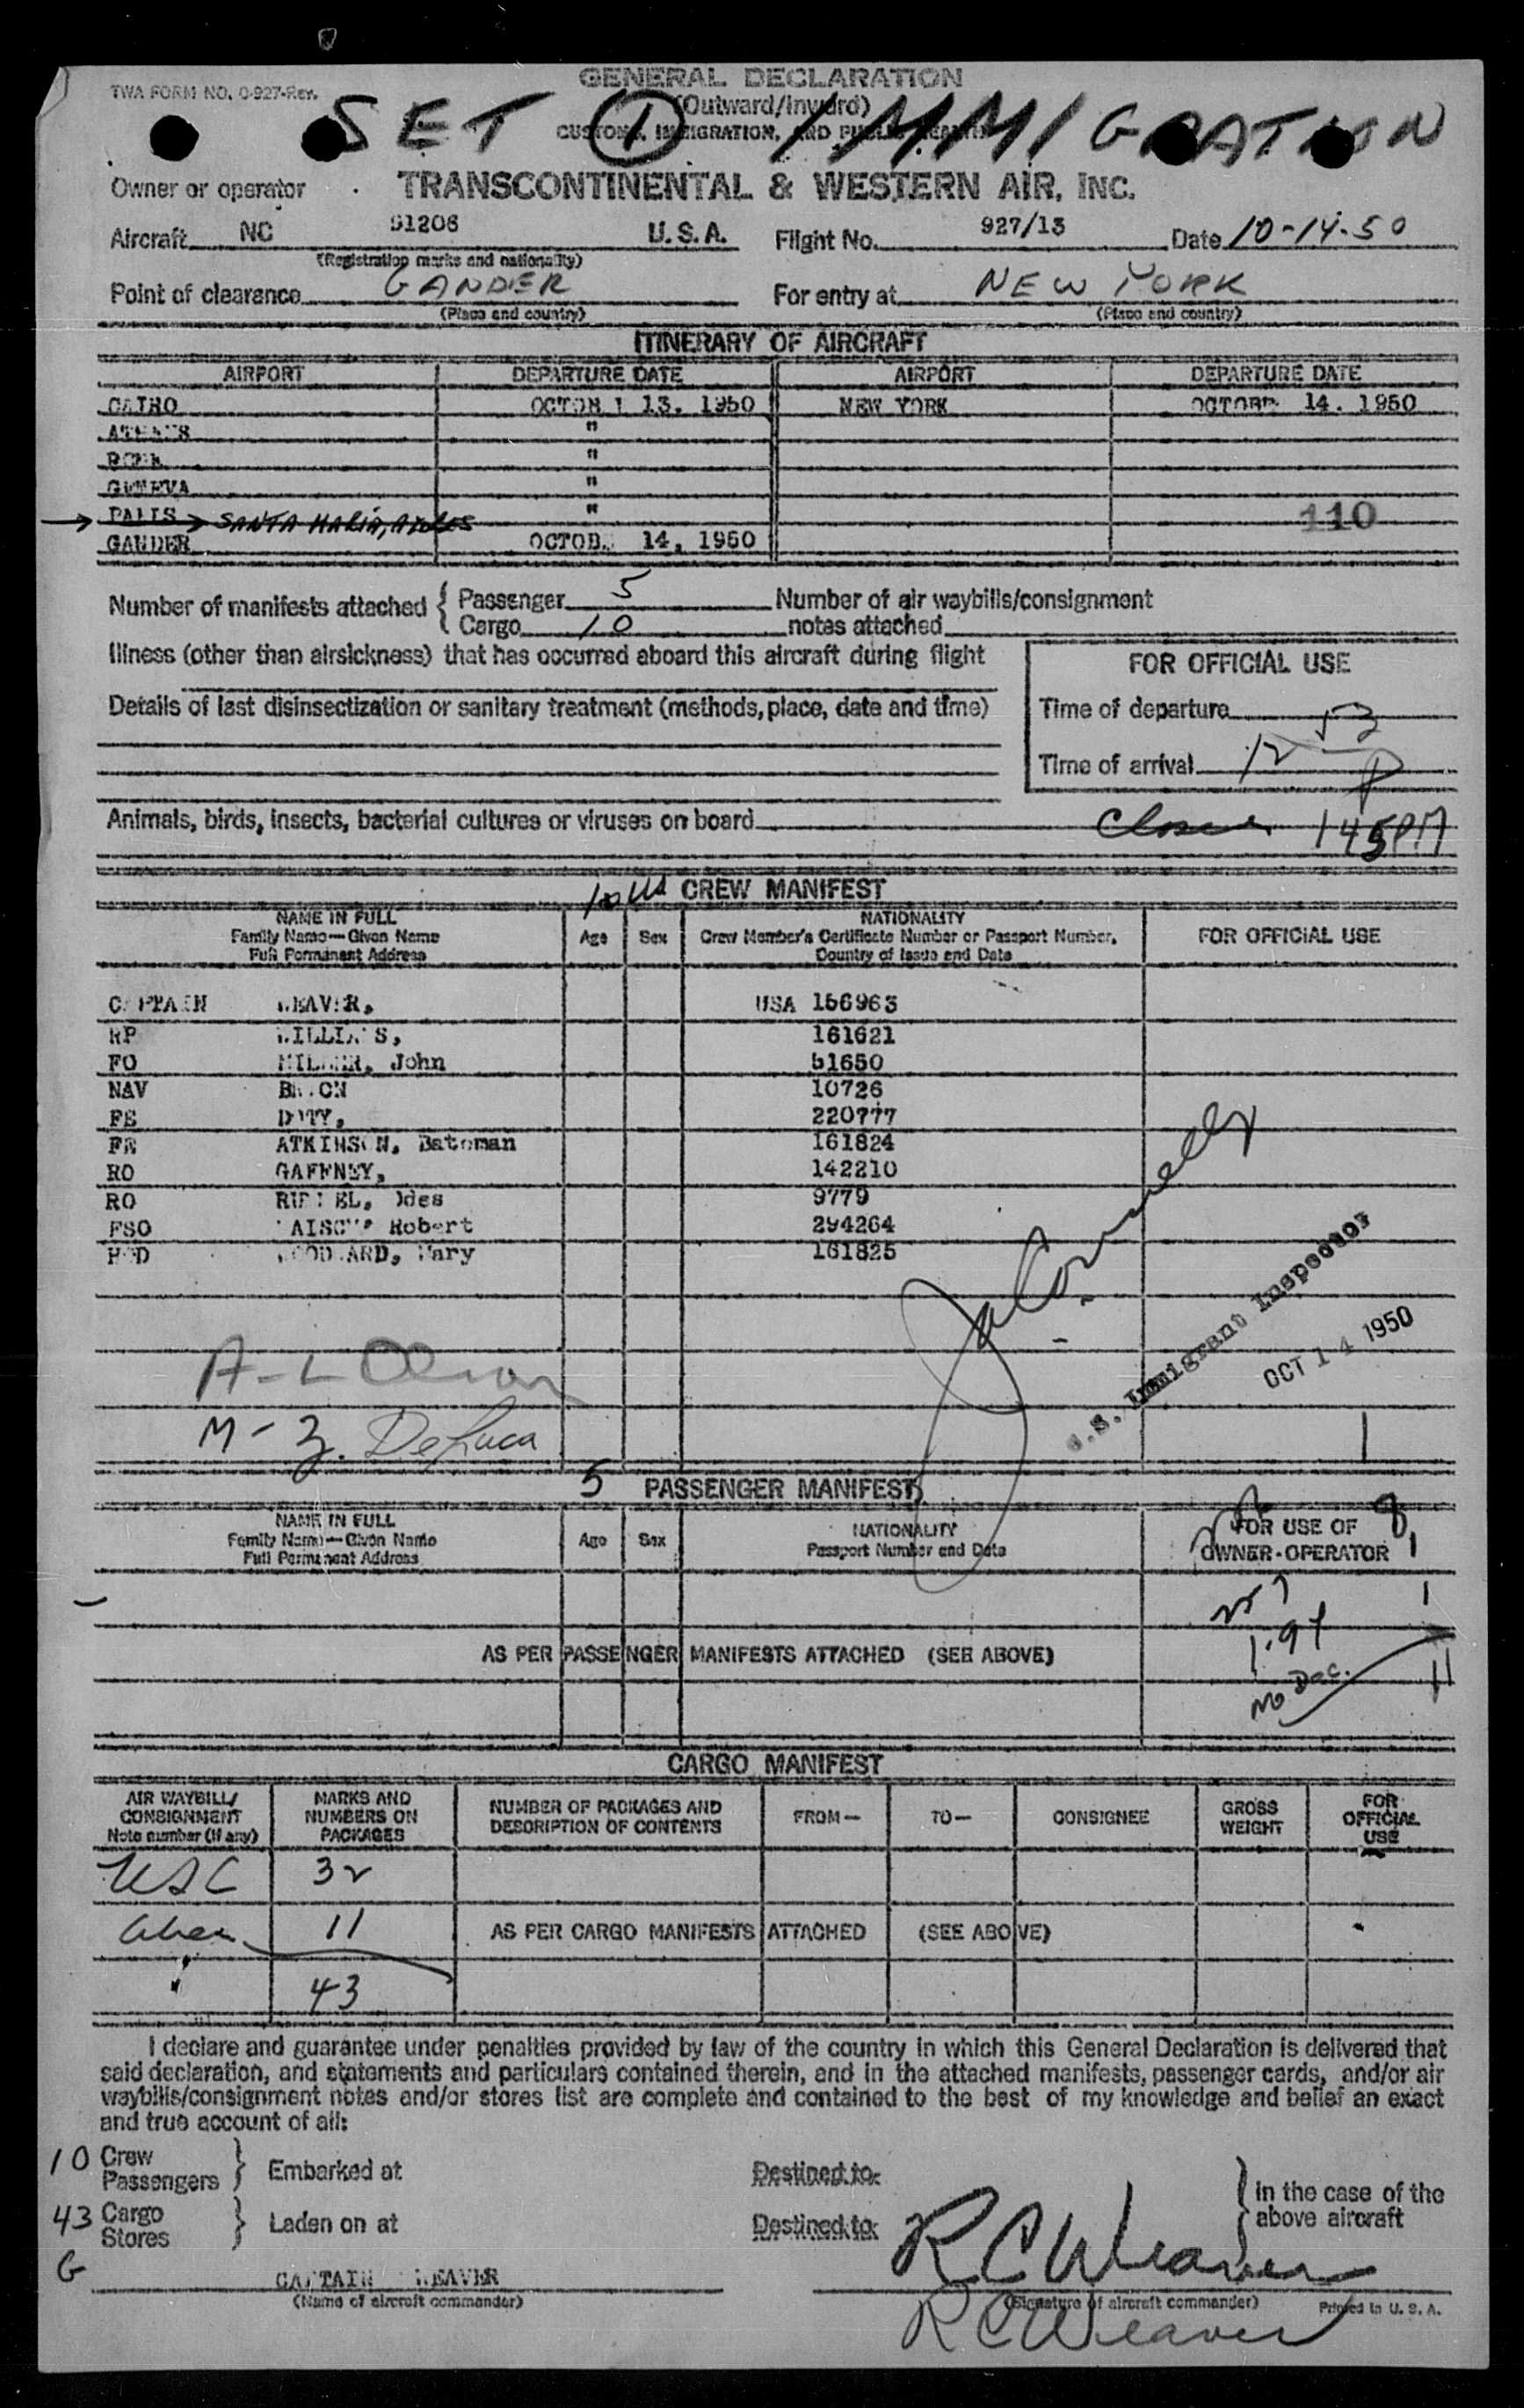 GENERAL DECLARATION
TWA FORM NO. 0-927-Rev.
(Outward/Inward)
SET 1 IMMIGRATION
CUSTOMS, IMMIGRATION, AND PUBLIC HEALTH
Owner or operator TRANSCONTINENTAL & WESTERN AIR, INC.
Aircraft NC 91206 U.S.A. Flight No. 927/13 Date 10-14-50
(Registration marks and nationality)
Point of clearance GANDER For entry at NEW YORK
(Place and country) (Place and country)
ITINERARY OF AIRCRAFT
AIRPORT DEPARTURE DATE AIRPORT DEPARTURE DATE
CAIRO 13, 1950 NEW YORK 14, 1950
ATHENS "
ROME "
GENEVA "
→ PARIS → SANTA MARIA, "
110
GANDER 14, 1950
Number of manifests attached { Passenger 5 Number of air waybills/consignment
Cargo 10 notes attached
Illness (other than airsickness) that has occurred aboard this aircraft during flight
FOR OFFICIAL USE
Details of last disinsectization or sanitary treatment (methods, place, date and time)
Time of departure
Time of arrival 12 53 P
Animals, birds, insects, bacterial cultures or viruses on board
145PM
CREW MANIFEST
NAME IN FULL NATIONALITY
Family Name—Given Name Age Sex Crew Member's Certificate Number or Passport Number, FOR OFFICIAL USE
Full Permanent Address Country of Issue and Date
CAPTAIN WEAVER, USA 156963
RP 161621
FO John 51650
NAV 10726
FE DOTY, 220777
FE ATKINSON, Bateman 161824
RO GAFFNEY, 142210
RO 9779
FSO Robert 294264
WOODWARD, Mary 161825
U.S. Immigrant Inspector
OCT 14 1950
M - 3. DeLuca
5 PASSENGER MANIFEST
NAME IN FULL NATIONALITY FOR USE OF
Family Name—Given Name Age Sex Passport Number and Date OWNER-OPERATOR
Full Permanent Address
AS PER PASSENGER MANIFESTS ATTACHED (SEE ABOVE)
No Dec.
11
CARGO MANIFEST
AIR WAYBILL/ CONSIGNMENT Note number (if any) MARKS AND NUMBERS ON PACKAGES NUMBER OF PACKAGES AND DESCRIPTION OF CONTENTS FROM— TO— CONSIGNEE GROSS WEIGHT FOR OFFICIAL USE
USC 32
11 AS PER CARGO MANIFESTS ATTACHED (SEE ABOVE)
43
I declare and guarantee under penalties provided by law of the country in which this General Declaration is delivered that
said declaration, and statements and particulars contained therein, and in the attached manifests, passenger cards, and/or air
waybills/consignment notes and/or stores list are complete and contained to the best of my knowledge and belief an exact
and true account of all:
10 Crew
Passengers } Embarked at Destined to
43 Cargo
Stores } Laden on at Destined to
} In the case of the
above aircraft
R C Weaver
G CAPTAIN WEAVER
(Name of aircraft commander) (Signature of aircraft commander) Printed in U. S. A.
R C Weaver